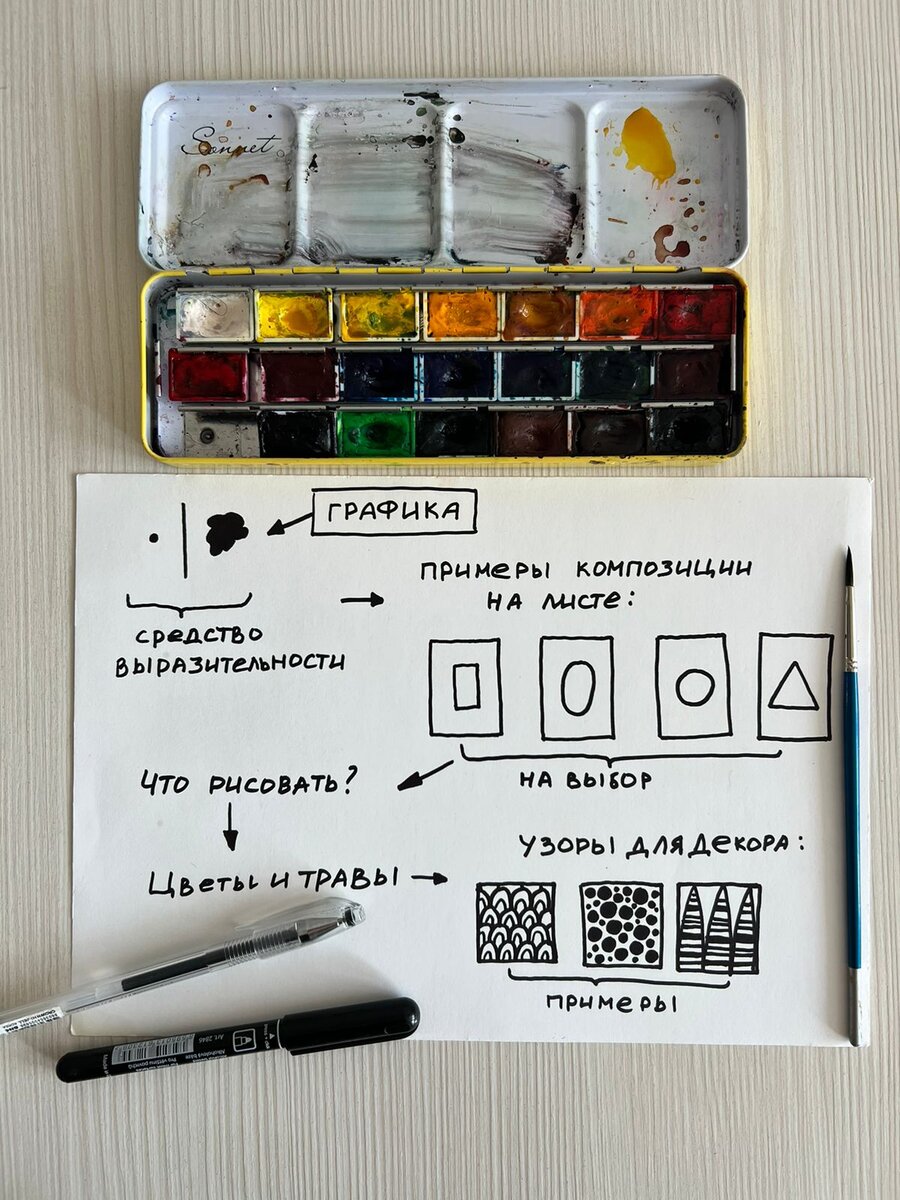 Sonnet
ГРАФИКА
СРЕДСТВО
ВЫРАЗИТЕЛЬНОСТИ
ПРИМЕРЫ КОМПОЗИЦИИ
НА ЛИСТЕ:
НА ВЫБОР
ЧТО РИСОВАТЬ?
ЦВЕТЫ И ТРАВЫ
УЗОРЫ ДЛЯ ДЕКОРА:
ПРИМЕРЫ
Art. 2846